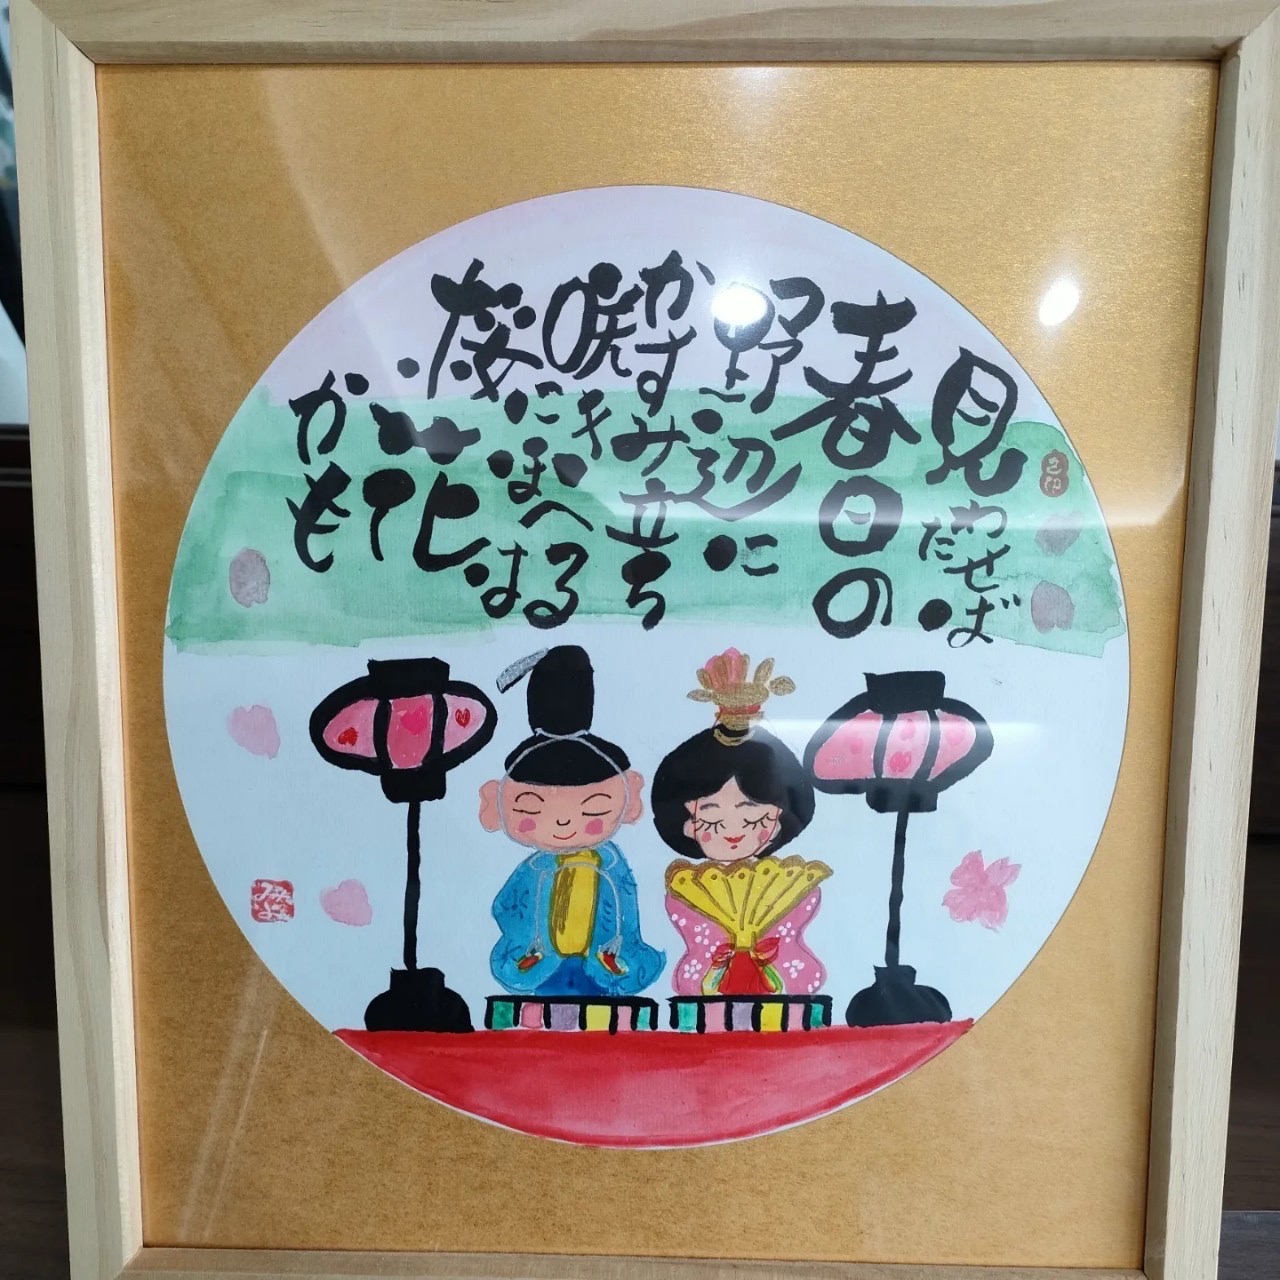 見わたせば
春日の
野辺に
かすみ立ち
咲きにほへるは
桜花
かも